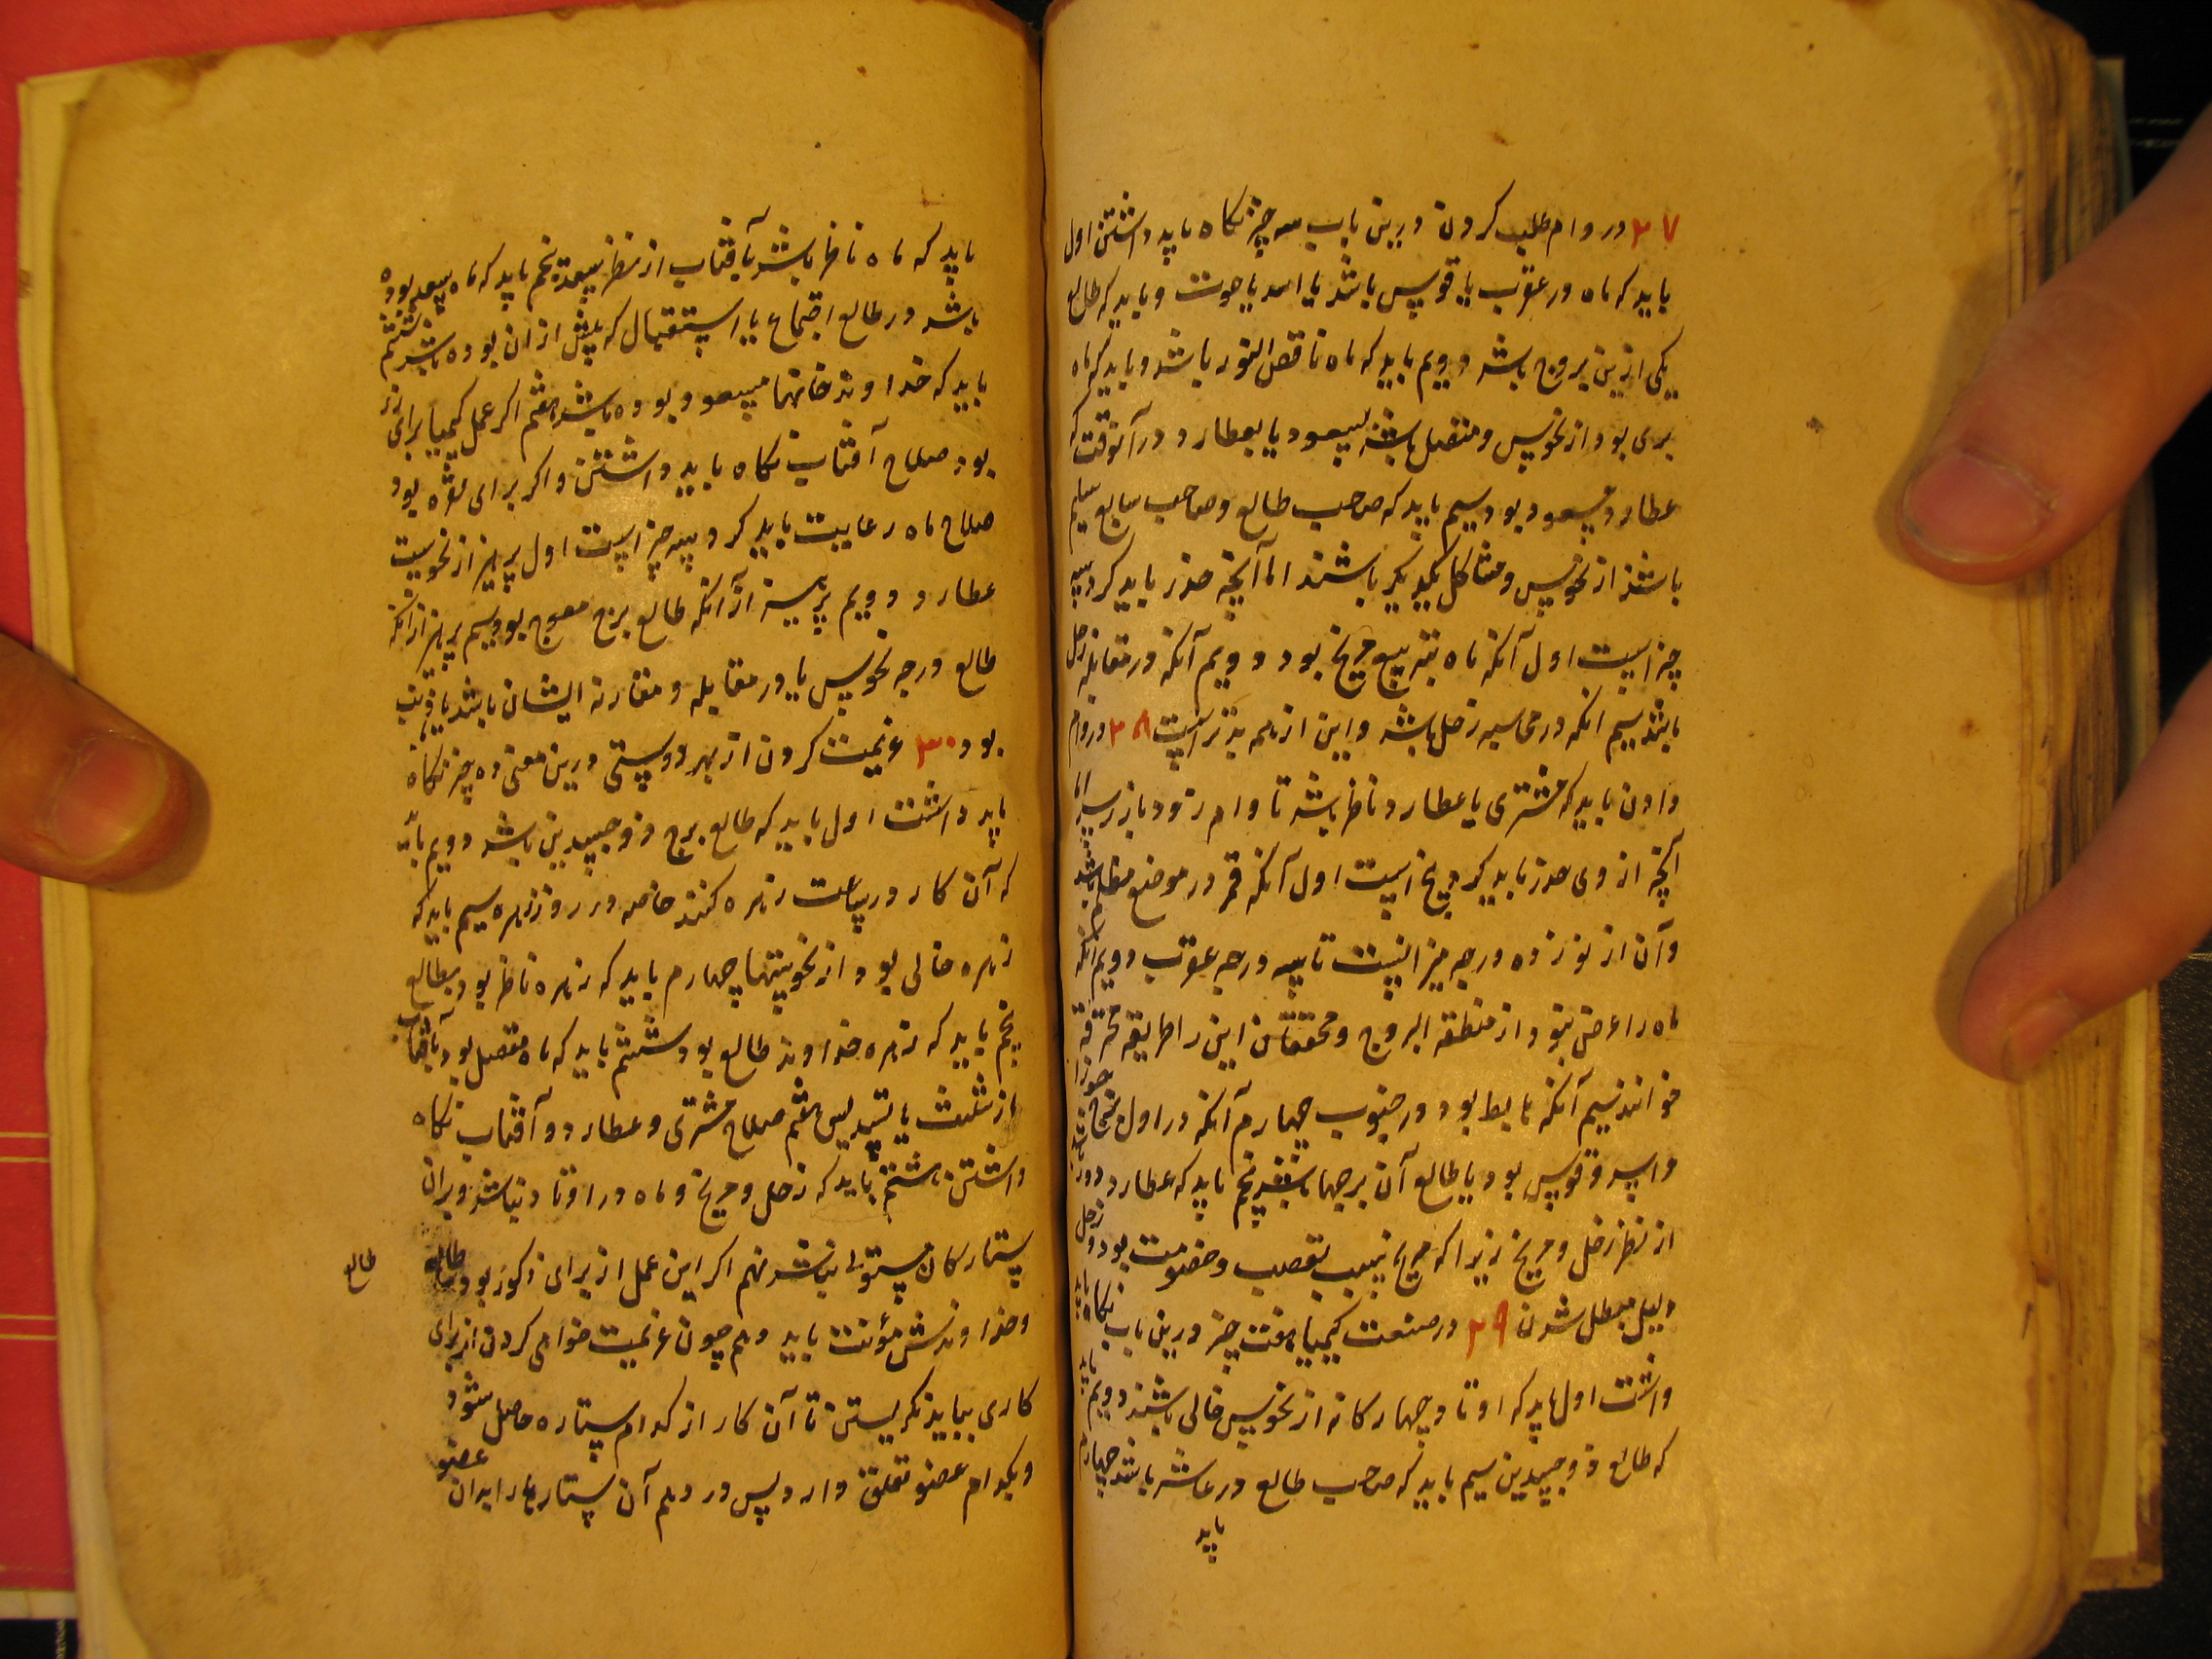 ۲۷ در وام طلب کردن درین باب سه چیز نکاه باید داشتن اول
باید که ماه در عقرب یا قوس باشد یا اسد یا حوت و باید که طالع
یکی ازین بروج باشد دویم باید که ماه ناقص النور باشد و باید که ماه
بری بود از نحوس و متصل باشد بسعود یا بعطارد در آنوقت که
عطارد مسعود بود سیم باید که صاحب طالع و صاحب سابع سلیم
باشند از نحوس و مشاکل یکدیکر باشند اما آنچه حذر باید کرد سه
چیز است اول آنکه ماه بتربیع مریخ بود دویم آنکه در مقابله زحل
باشد سیم انکه در محاسبه زحل باشد و این از همه بدتر است ۲۸ در وام
دادن باید که مشتری یا عطارد ناظر باشد تا وام زود باز رسد اما
آنچه از وی حذر باید کرد پنج است اول آنکه قمر در موضع مظلم باشد
و آن از نوزده درجه میزانست تا سه درجه عقرب دویم انکه
ماه را عرض نبود از منطقه البروج و محققان این را طریقه محترقه
خوانند سیم آنکه هابط بود در جنوب چهارم آنکه در اول برج جوزا
و اسد و قوس بود یا طالع آن برجها باشد پنجم باید که عطارد دور باشد
از نظر زحل و مریخ زیرا که مریخ سبب تعصب و خصومت بود و زحل
دلیل مبطل شدن ۲۹ در صنعت کیمیا هفت چیز درین باب نکاه باید
داشت اول باید که اوتاد چهارکانه از نحوس خالی باشند دویم باید
که طالع ذو جسدین سیم باید که صاحب طالع در عاشر باشد چهارم
باید
باید که ماه ناظر باشد بآفتاب از نظر سعد پنجم باید که ماه سعد بوده
باشد در طالع اجتماع یا استقبال که پیش ازان بوده باشد ششم
باید که خداوند خانها مسعود بوده باشد هفتم اکر عمل کیمیا برای زر
بود صلاح آفتاب نکاه باید داشتن و اکر برای نقره بود
صلاح ماه رعایت باید کرد و سه چیز است اول پرهیز از نحوست
عطارد دویم پرهیز از آنکه طالع برج معوج بود سیم پرهیز ازانکه
طالع درجه نحوس یا در مقابله و مقارنه ایشان باشد یا قریب
بود ۳۰ عزیمت کردن از بهر دوستی درین معنی ده چیز نکاه
باید داشت اول باید که طالع برج ذو جسدین باشد دویم باید
که آن کار در ساعت زهره کنند خاصه در روز زهره سیم باید که
زهره خالی بود از نحوستها چهارم باید که زهره ناظر بود بطالع
پنجم باید که زهره خداوند طالع بود ششم باید که ماه متصل بود بآفتاب
از تثلیث یا تسدیس هفتم صلاح مشتری و عطارد و آفتاب نکاه
داشتن هشتم باید که زحل و مریخ و ماه در اوتاد نباشد و بران
ستارکان مستولی نباشد نهم اکر این عمل از برای ذکور بود طالع
طالع
و خداوندش مؤنث باید دهم چون عزیمت خواهی کردن از برای
کاری بباید نکریستن تا آن کار از کدام ستاره حاصل شود
و بکدام عضو تعلق دارد پس در دهم آن ستارها را بدان عضو